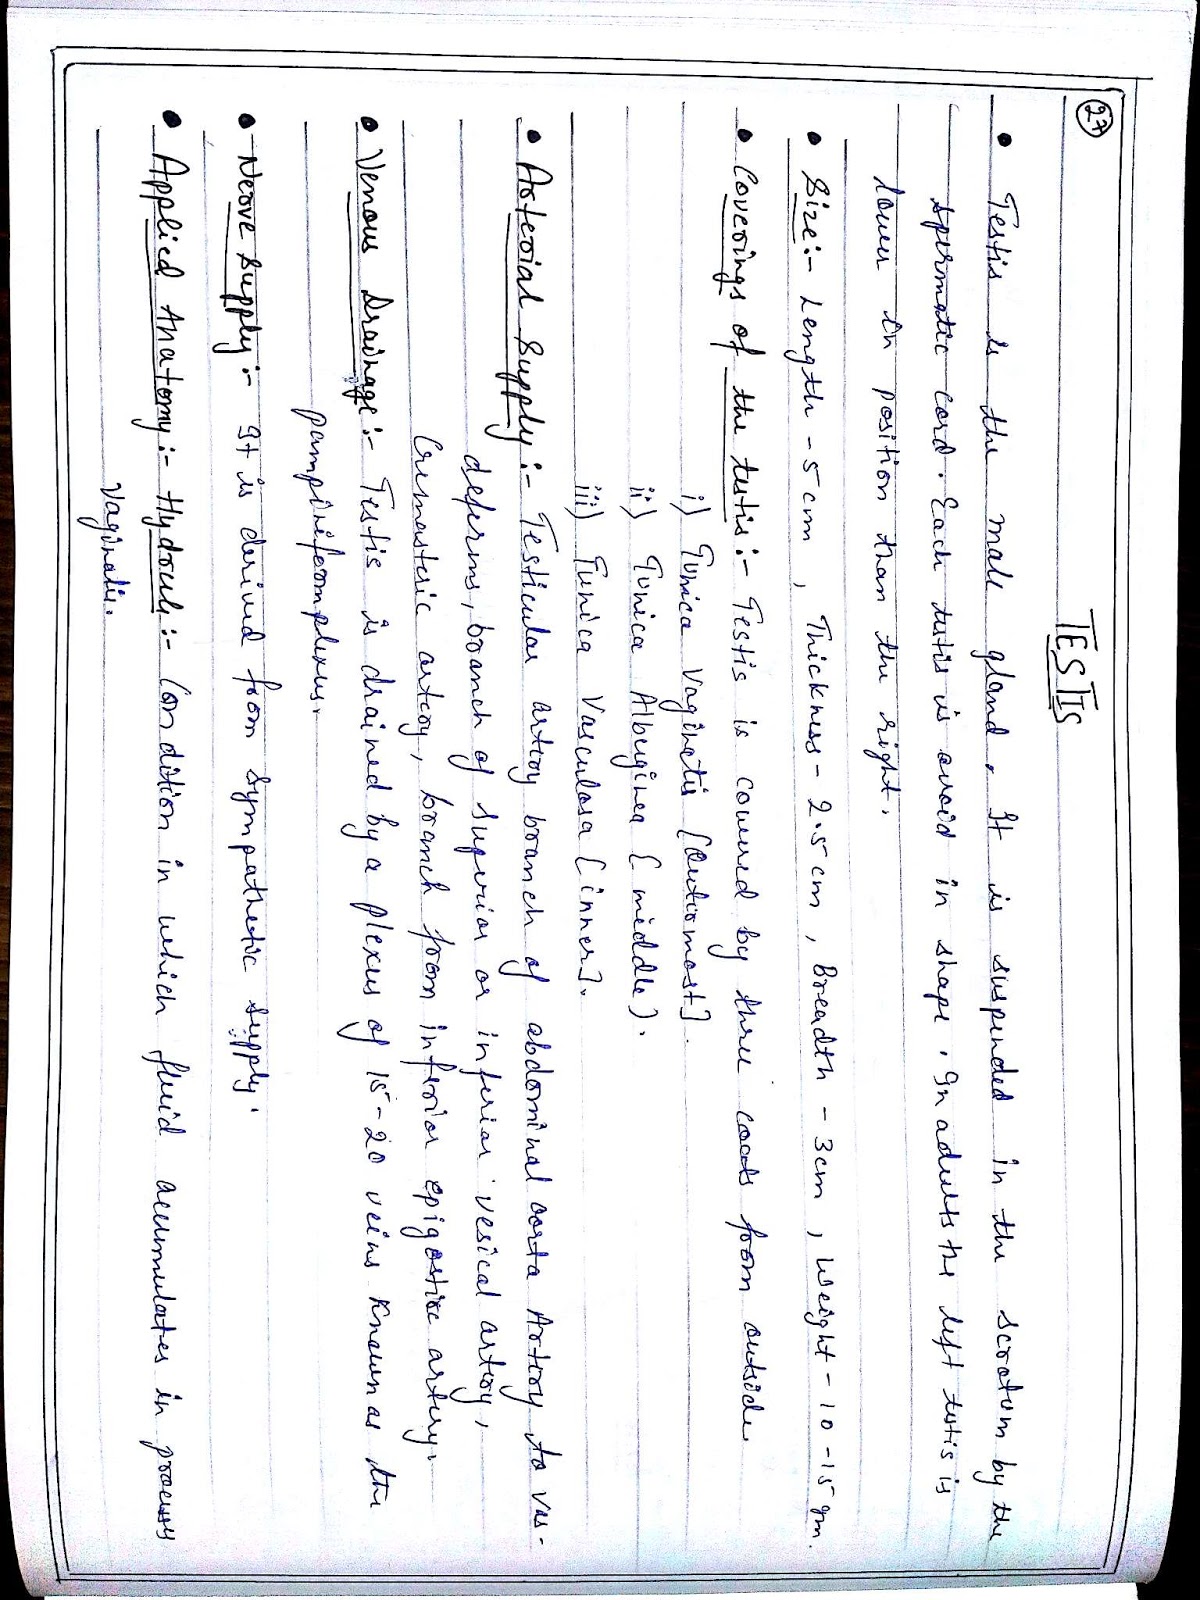 27
TESTIS
• Testis is the male gland. It is suspended in the scrotum by the
spermatic cord. Each testis is ovoid in shape. In adults the left testis is
lower in position than the right.
• Size:- Length - 5cm, Thickness - 2.5cm, Breadth - 3cm, Weight - 10-15 gm.
• Coverings of the testis:- Testis is covered by three coats from outside
i) Tunica Vaginatis [Outermost].
ii) Tunica Albuginea (middle).
iii) Tunica Vasculosa [inner].
• Arterial Supply:- Testicular artery branch of abdominal aorta Artery to vas-
deferns, branch of superior or inferior vesical artery,
Cremasteric artery, branch from inferior epigastric artery.
• Venous Drainage:- Testis is drained by a plexus of 15-20 veins known as the
pampiniformplexus.
• Nerve Supply:- It is derived from sympathetic supply.
• Applied Anatomy:- Hydrocele:- Condition in which fluid accumulates in process
vaginalis.